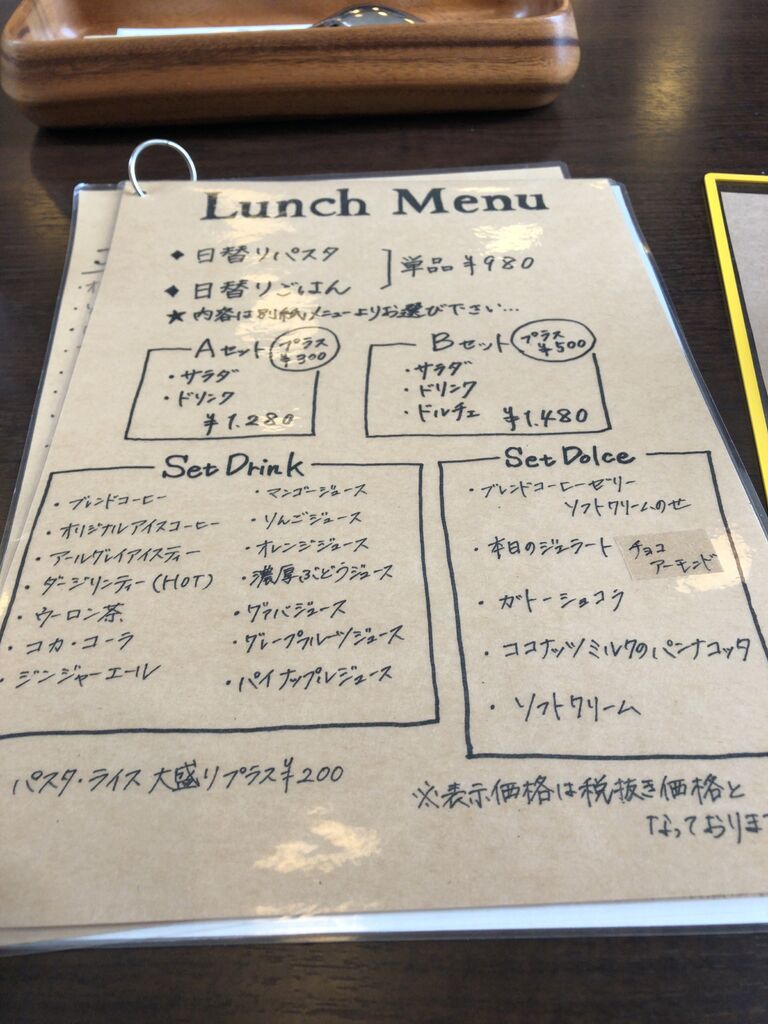 Lunch Menu
◆ 日替りパスタ
◆ 日替りごはん
単品 ¥980
★ 内容は別紙メニューよりお選び下さい…
Aセット プラス ¥300
・サラダ
・ドリンク
¥1.280
Bセット プラス ¥500
・サラダ
・ドリンク
・ドルチェ ¥1.480
Set Drink
・ブレンドコーヒー
・オリジナルアイスコーヒー
・アールグレイアイスティー
・ダージリンティー(HOT)
・ウーロン茶
・コカ・コーラ
・ジンジャーエール
・マンゴージュース
・りんごジュース
・オレンジジュース
・濃厚ぶどうジュース
・グァバジュース
・グレープフルーツジュース
・パイナップルジュース
Set Dolce
・ブレンドコーヒーゼリー
ソフトクリームのせ
・本日のジェラート チョコ
アーモンド
・ガトーショコラ
・ココナッツミルクのパンナコッタ
・ソフトクリーム
パスタ・ライス 大盛りプラス¥200
※表示価格は税抜き価格と
なっておりま